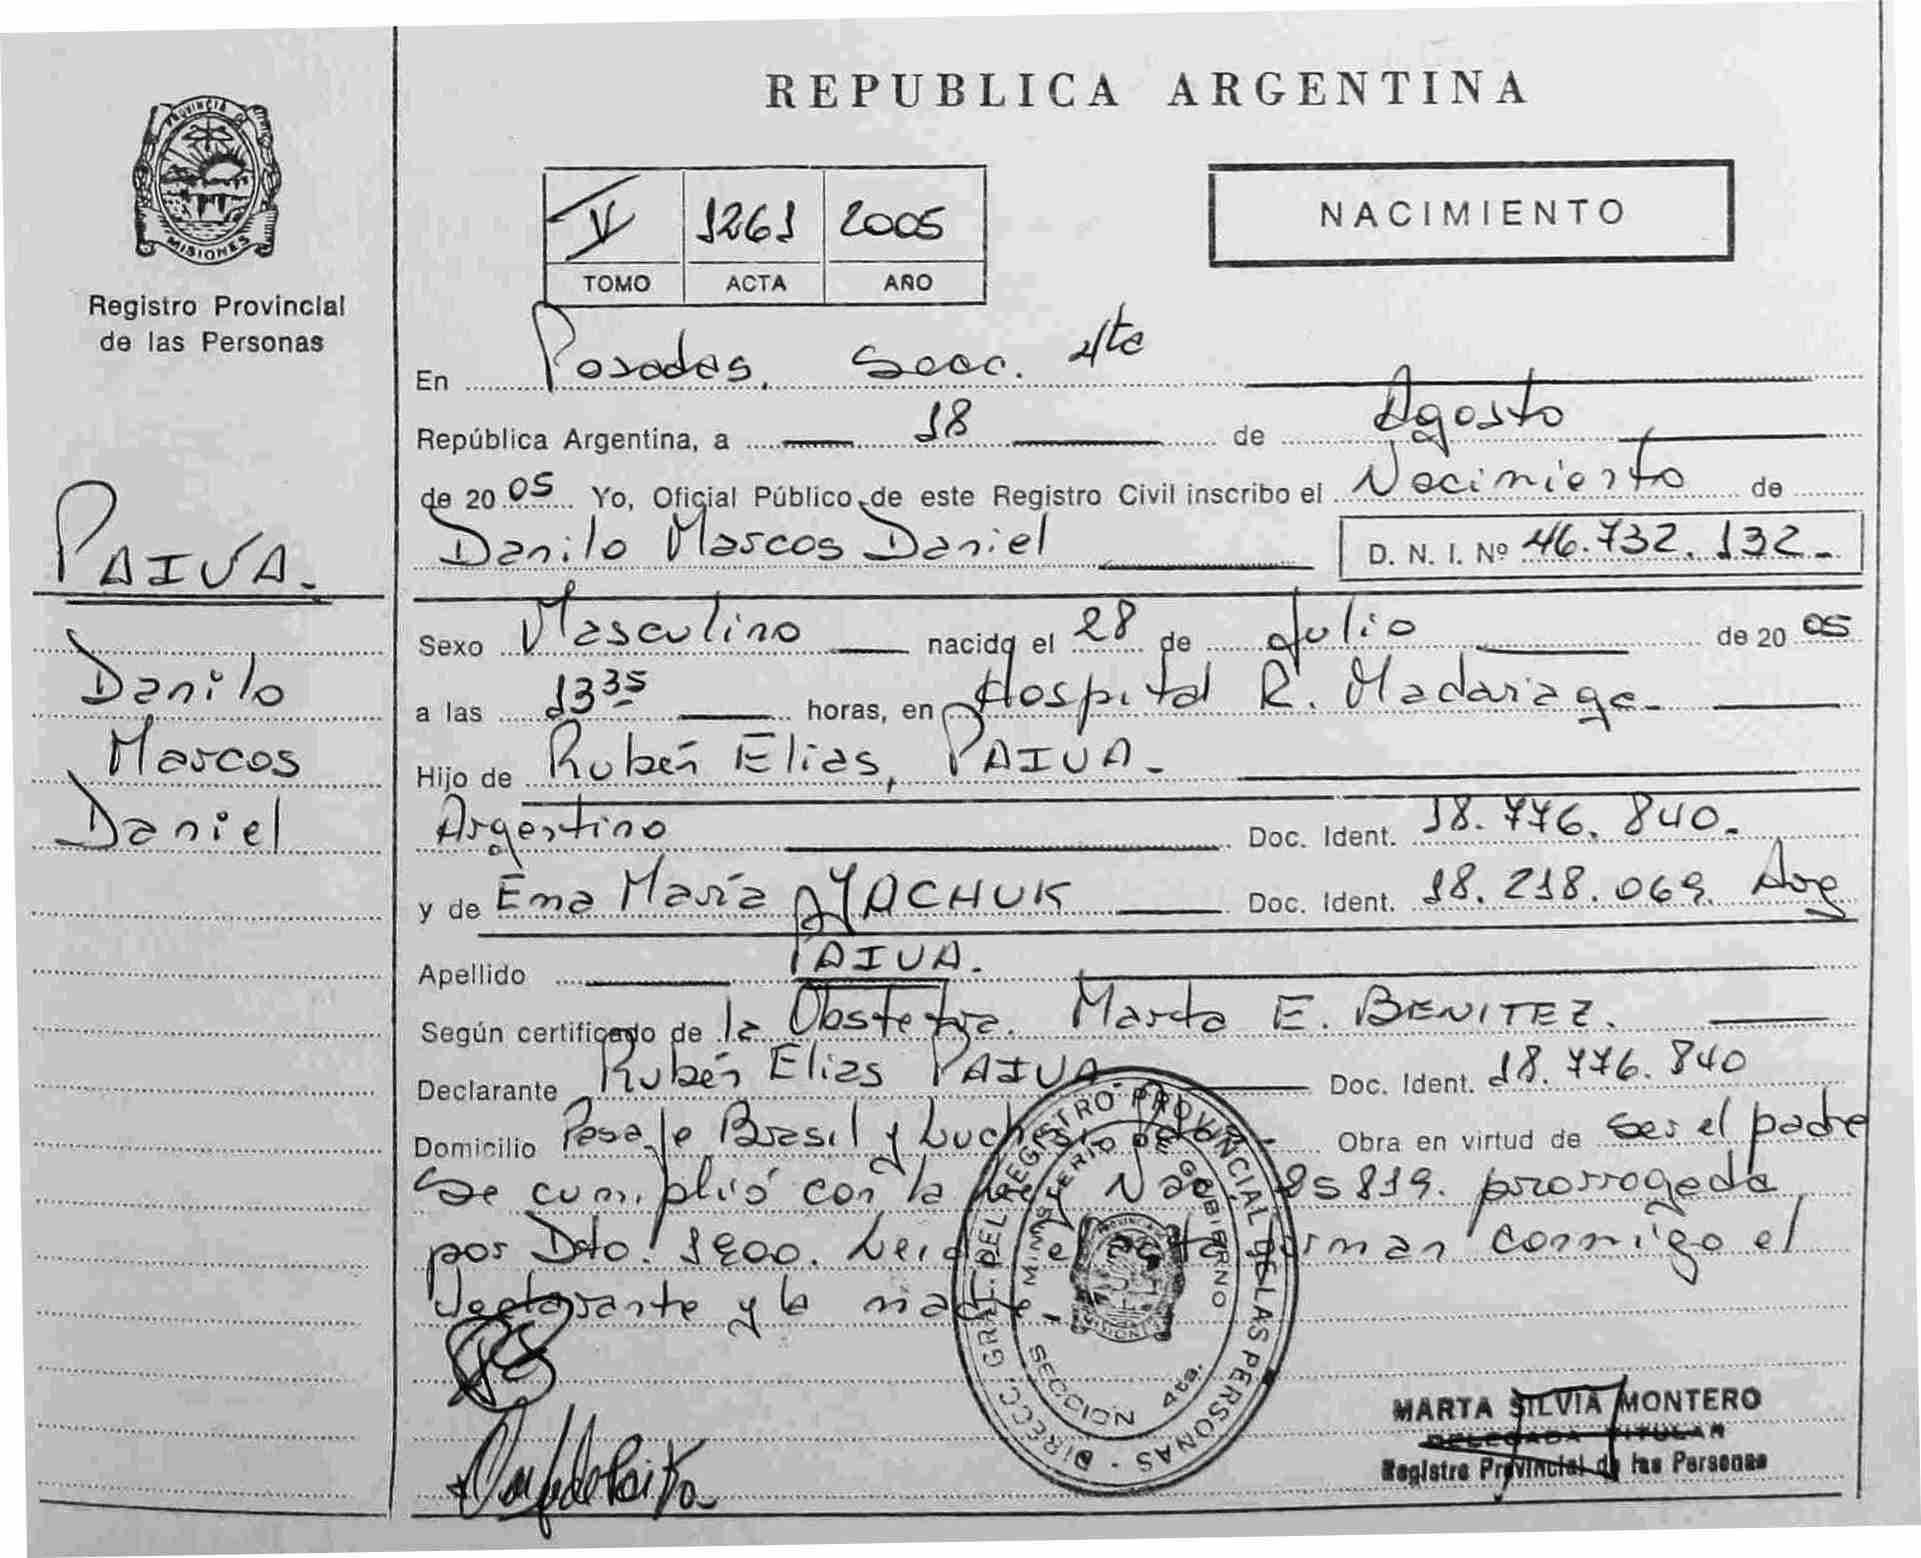 REPUBLICA ARGENTINA
PROVINCIA DE
MISIONES
Registro Provincial
de las Personas
V 1261 2005
TOMO ACTA AÑO
NACIMIENTO
PAIVA.
Danilo
Marcos
Daniel
En Posadas, Secc. 4ta
República Argentina, a 18 de Agosto
de 2005 Yo, Oficial Público de este Registro Civil inscribo el Nacimiento de
Danilo Marcos Daniel D. N. I. Nº 46.732.132-
Sexo Masculino nacido el 28 de Julio de 2005
a las 13 35 horas, en Hospital R. Madariaga-
Hijo de Rubén Elias, PAIVA-
Argentino Doc. Ident. 18.776.840-
y de Ema María YACHUK Doc. Ident. 18.218.069. Arg
Apellido PAIVA.
Según certificado de la Obstetra. Marta E. BENITEZ.
Declarante Rubén Elias PAIVA Doc. Ident. 18.776.840
Domicilio Pasaje Brasil y Obra en virtud de ser el padre
Se cumplió con la ley Nac. 25819. prorrogada
por Dto. 1900. Leida el acta firman conmigo el
declarante y la madre.
DIRECC. GRAL. DEL REGISTRO PROVINCIAL DE LAS PERSONAS
MINISTERIO DE GOBIERNO
SECCION 4ta.
MARTA SILVIA MONTERO
DELEGADA TITULAR
Registro Provincial de las Personas